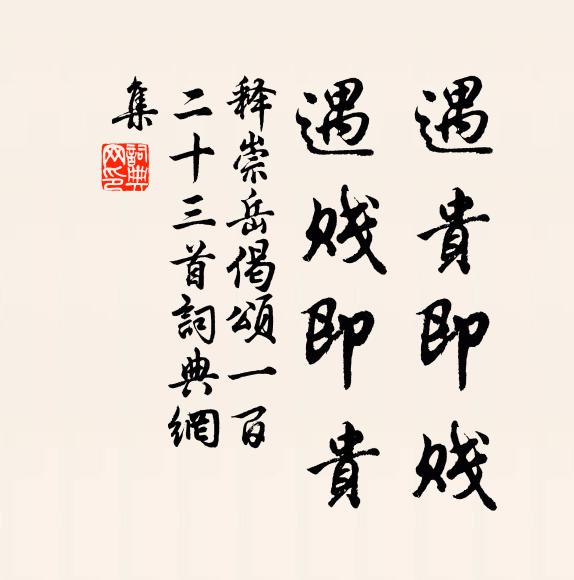 遇貴即賤
遇賤即貴
释崇岳偈頌一百
二十三首詞典網
集
詞典网印